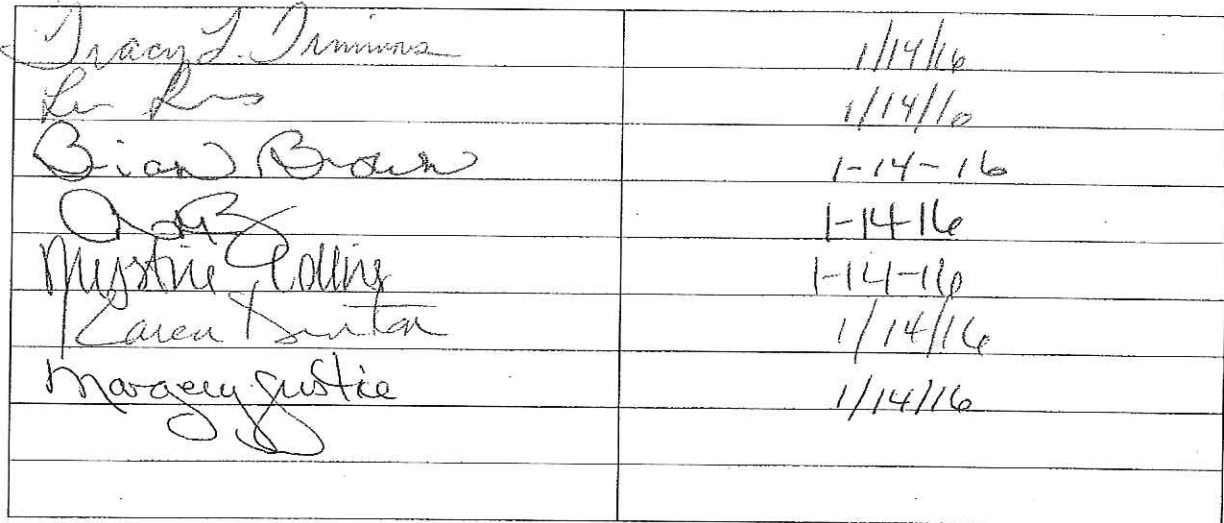 Tracy L. Timmons 1/14/16
1/14/16
Brian Brown 1-14-16
1-14-16
Mystine Collins 1-14-16
Karen 1/14/16
Margery Justice 1/14/16